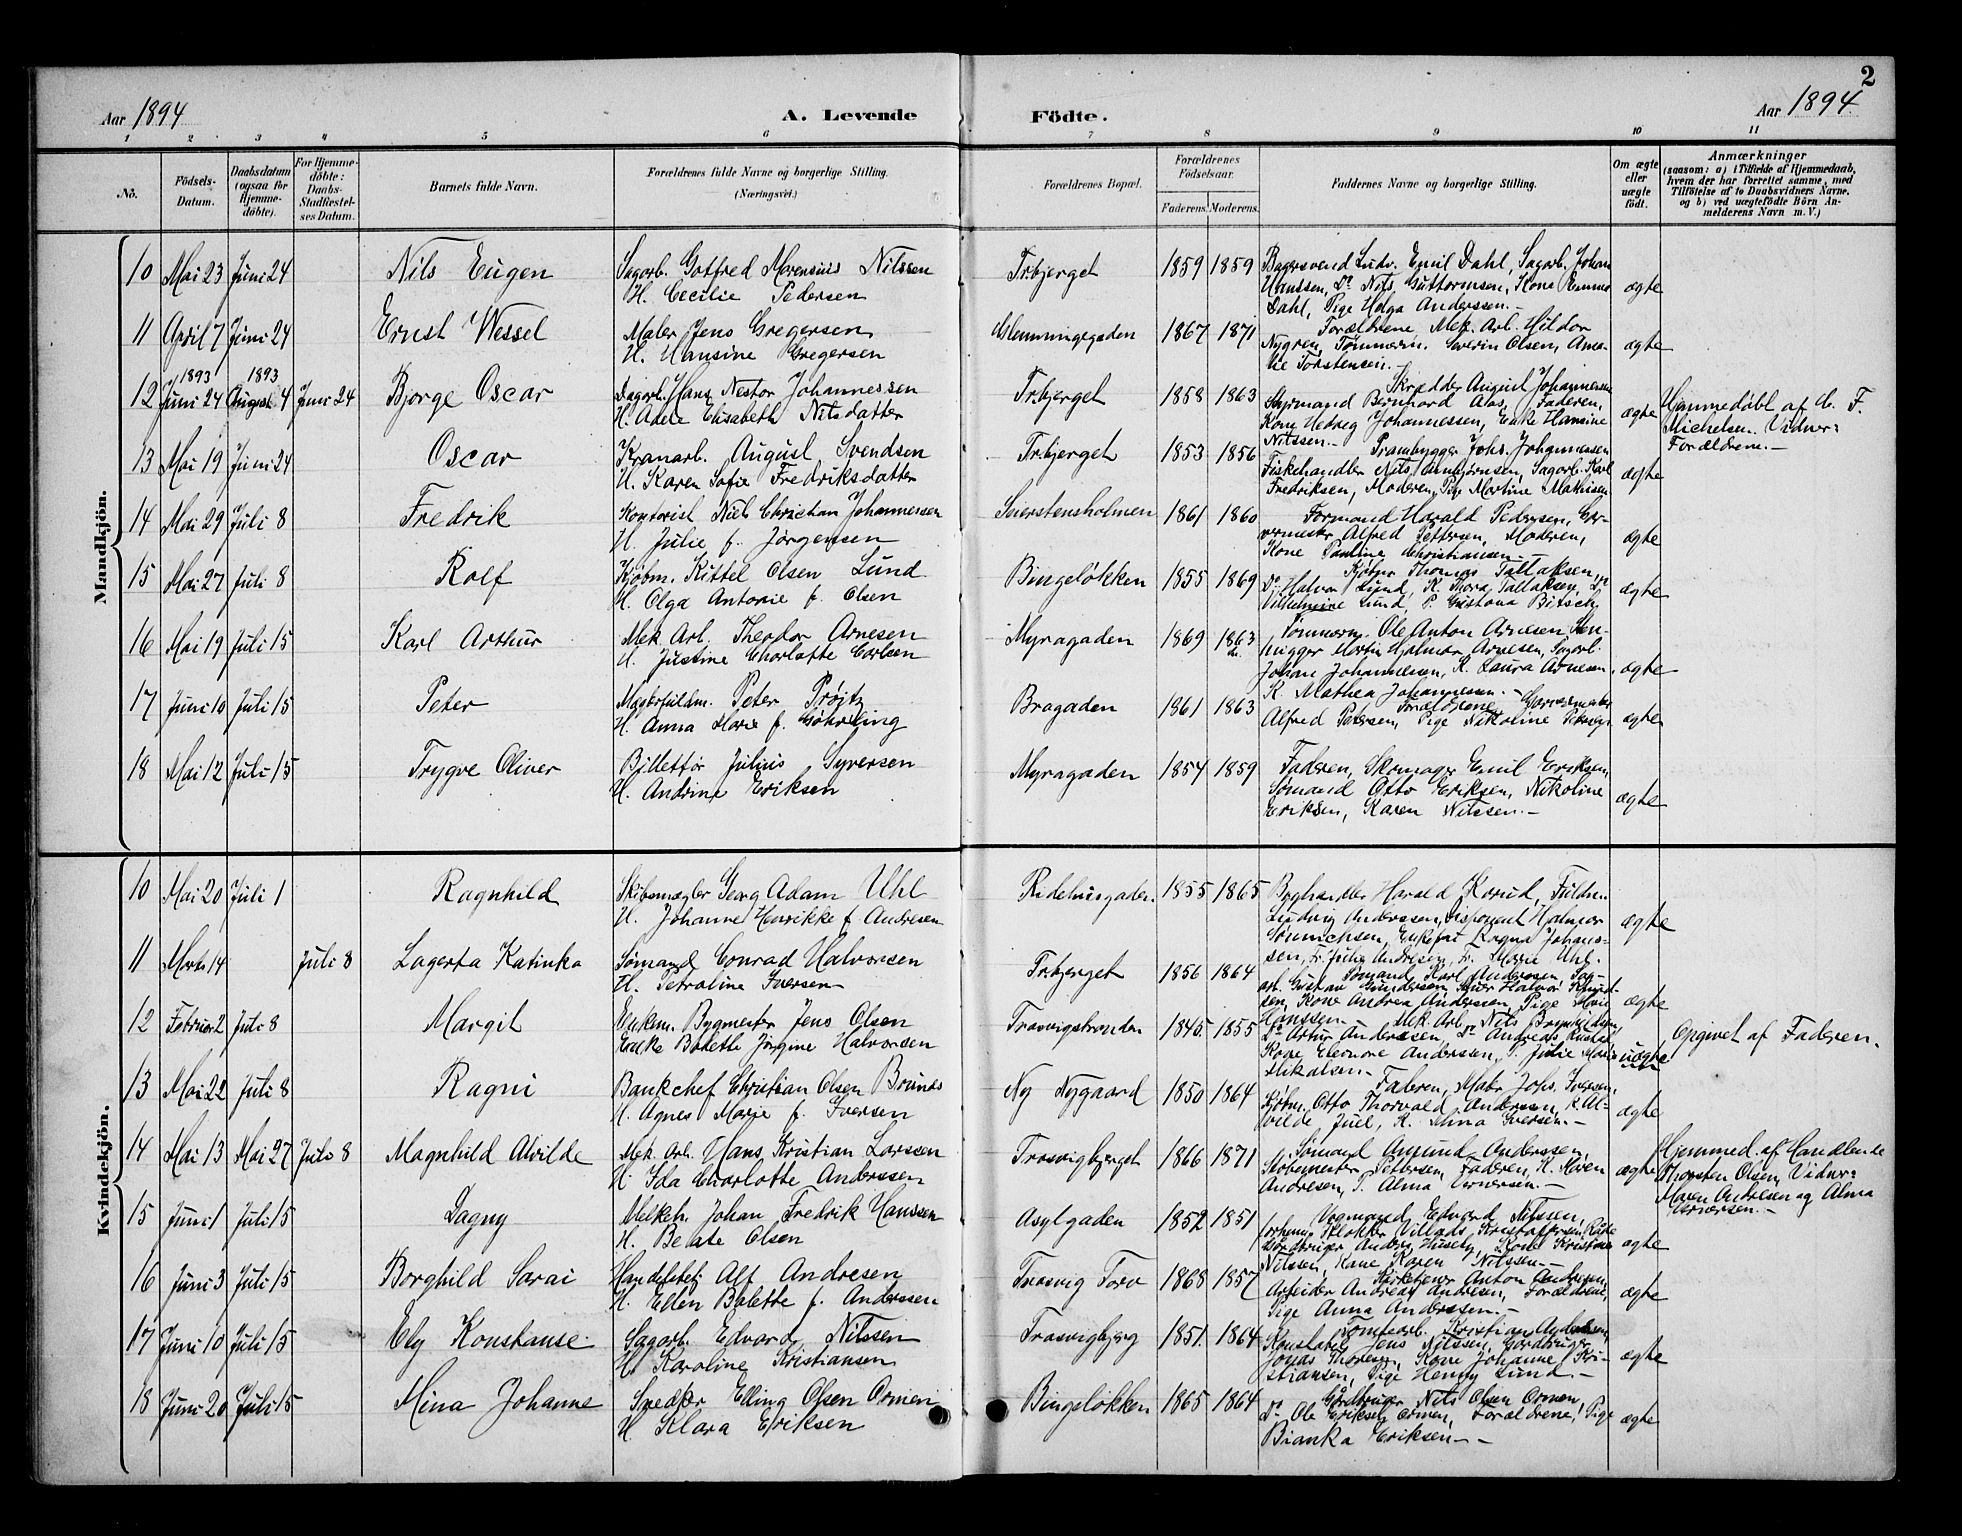 2
Aar 1894
A. Levende Födte.
Aar 1894.
1 2 3 4 5 6 7 8 9 10 11
No.
Födsels-Datum.
Daabsdatum (ogsaa for Hjemmedöbte).
For Hjemmedöbte: Daabs-Stadfæstelses Datum.
Barnets fulde Navn.
Forældrenes fulde Navne og borgerlige Stilling. (Næringsvei.)
Forældrenes Bopæl.
Forældrenes Födselsaar.
Faderens. Moderens.
Faddernes Navne og borgerlige Stilling.
Om ægte eller uægte födt.
Anmærkninger
(saasom: a) i Tilfælde af Hjemmedaab, hvem der har forrettet samme, med Tilföielse af to Daabsvidners Navne, og b) ved uægtefödte Börn Anmelderens Navn m. V.)
Mandkjön.
10 Mai 23 Juni 24 Nils Eugen
Sagarb. Gotfred Marensius Nilssen
H. Cecilie Pedersen
Trbjerget 1859 1859
Bagersvend Ludv. Emil Dahl, Sagarb. Johan
Hanssen, Do Nils Guttormsen, Kone
Dahl, Pige Helga Anderssen.-
ægte
11 April 7 Juni 24 Ernst Wessel
Maler Jens Gregersen
H. Hansine Gregersen
1867 1871
Forældrene, Mek. Arb. Hildor
Nygren, Tømmerm. Severin Olsen, Ama-
lie Torstensen.-
ægte
12 1893 Juni 24 1893 August 4 Juni 24 Bjorge Oscar
Dagarb. Hans Nestor Johannessen
H. Adele Elisabeth Nilsdatter
Trbjerget 1858 1863
Skrædder August Johannessen
Styrmand Bernhard Aas, Faderen,
Kone Hedvig Johannessen, Enke Hansine
Nilssen.-
ægte
Hjemmedøbt af C. F.
Michelsen. Vidner:
Forældrene.-
13 Mai 19 Juni 24 Oscar
Kranarb. August Svendsen
H. Karen Sofie Fredriksdatter
Trbjerget 1853 1856
Prambygger Johs. Johannessen
Fiskehandler Nils, Sagarb. Karl
Fredriksen, Moderen, Pige Martine Mathisen
ægte
14 Mai 29 Juli 8 Fredrik
Kontorist Niels Christian Johannessen
H. Julie f. Jørgensen
Seierstensholmen 1861 1860
Formand Harald Pedersen, Gar-
vermester Alfred Pettersen, Moderen,
Kone Pauline Christiansen.-
ægte
15 Mai 27 Juli 8 Rolf
Kjøbm. Kittel Olsen Lund
H. Olga Antonie f. Olsen
Bingeløkken 1855 1869
Kjøbm. Thomas Tallaksen,
Do Halvor Lund, K. Thora Tallaksen,
Vilhelmine Lund, P. Gustava Bitsch
ægte
16 Mai 19 Juli 15 Karl Arthur
Mek. Arb. Theodor Arnesen
H. Justine Charlotte Carlsen
Myragaden 1869 1863
Tømmerm. Ole Anton Arnesen, Sten-
hugger Martin Hjalmar Arnesen, Sagarb.
Johan Johannessen, K. Laura Arnesen,
K. Mathea Johannessen.-
ægte
17 Juni 10 Juli 15 Peter
Peter Prøitz
H. Anna Marie f. Gøhrling
Bragaden 1861 1863
Forældrene, Garvermester
Alfred Petersen, Pige Nikoline
ægte
18 Mai 12 Juli 15 Trygve Oliver
Billettør Julius Syversen
H. Andrine Eriksen
Myragaden 1854 1859
Faderen, Skomager Emil Eriksen,
Sømand Otto Eriksen, Nikoline
Eriksen, Karen Nilssen.-
ægte
Kvindekjön.
10 Mai 20 Juli 1 Ragnhild
Skibsmægler Georg Adam Uhl
H. Johanne Henrikke f. Andresen
Ridehusgaden. 1855 1865
Boghandler Harald Korud, Fuldm.
Ludvig Anderssen, Disponent Halmar
Sønnichsen, Enkefru Ragna Johans-
sen, Fr. Julia Andresen, Fr. Marie Uhl.
ægte
11 Marts 14 Juli 8 Lagerta Katinka
Sømand Conrad Halvorsen
H. Petroline Iversen
Trbjerget 1856 1864
Sømand Karl Andersen, Sag-
arb. Gustav Gundersen, Halvor Knud-
sen, Kone Andrea Andersen, Pige Marie
Hanssen.-
ægte
12 Februar 2 Juli 8 Margit
Enkem. Bygmester Jens Olsen
Enke Bolette Jørgine Halvorsen
Trosvigstranden 1845. 1855
Mek. Arb. Nils Brynhildsen,
Do Artur Anderssen, Do Andreas
Kone Eleonore Andersen, P. Julie Marie
Mikalsen.-
uægte
Opgivet af Faderen.
13 Mai 22 Juli 8 Ragni
Bankchef Christian Olsen Brunæs
H. Agnes Marie f. Iversen
Ny Nygaard 1850 1864
Faderen, Johs. Iversen,
Kjøbm. Otto Thorvald Andersen, K. Al-
vilde Juel, K. Iversen.-
ægte
14 Mai 13 Mai 27 Juli 8 Magnhild Alvilde
Mek. Arb. Hans Kristian Larssen
H. Ida Charlotte Anderssen
Trosvigbjerget 1866 1871
Sømand Amund Anderssen,
Pettersen, Faderen, K. Maren
Andresen, P. Alma Vernersen.-
ægte
Hjemmed. af Handlende
Thorsten Olsen, Vidner:
Maren Andresen og Alma
Vernersen.-
15 Juni 1 Juli 15 Dagny
Melkeh. Johan Fredrik Hanssen
H. Beate Olsen
Asylgaden 1852 1851
Vognmand Edvard Nilssen,
Klokker Villads Kristoffersen
Gårdbruger Anders Huseby, Kone Kristine
Nilssen, Kone Karen Nilssen.-
ægte
16 Juni 3 Juli 15 Borghild Sarai
Handelsbetj. Alf Andresen
H. Ellen Bolette f. Anderssen
Trosvig Torv 1868 1857
Kirketjener Anton Andresen,
Arbeider Andreas Andresen, Forældrene,
Pige Anna Anderssen.-
ægte
17 Juni 10 Juli 15 Ely Konstanse
Sagarb. Edvard Nilssen
H. Karoline Kristiansen
Trosvigbjerg 1851. 1864
Tomtearb. Kristian Andersen,
Konstabel Jens Nilssen, Gårdbruger
Thoresen, Kone Johanne Kri-
stiansen, Pige Henny Lund.-
ægte
18 Juni 20 Juli 15 Mina Johanne
Snedker Elling Olsen Ormen
H. Klara Eriksen
Bingeløkken 1865 1864
Gårdbruger Nils Olsen Ormen,
Do Ole Eriksen Ormen, Forældrene, Pige
Bianka Eriksen.-
ægte